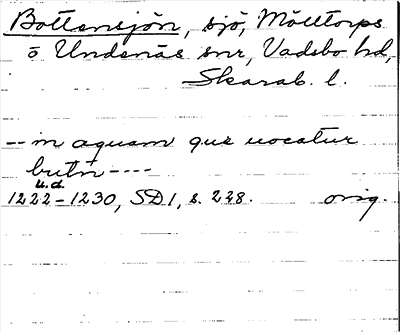 Bottensjön, sjö, Mölltorps
o Undenäs snr, Vadsbo hd,
Skarab. l.
-- in aquam que uocatur
butn ----
u.d.
1222-1230, SD 1, s. 228. orig.